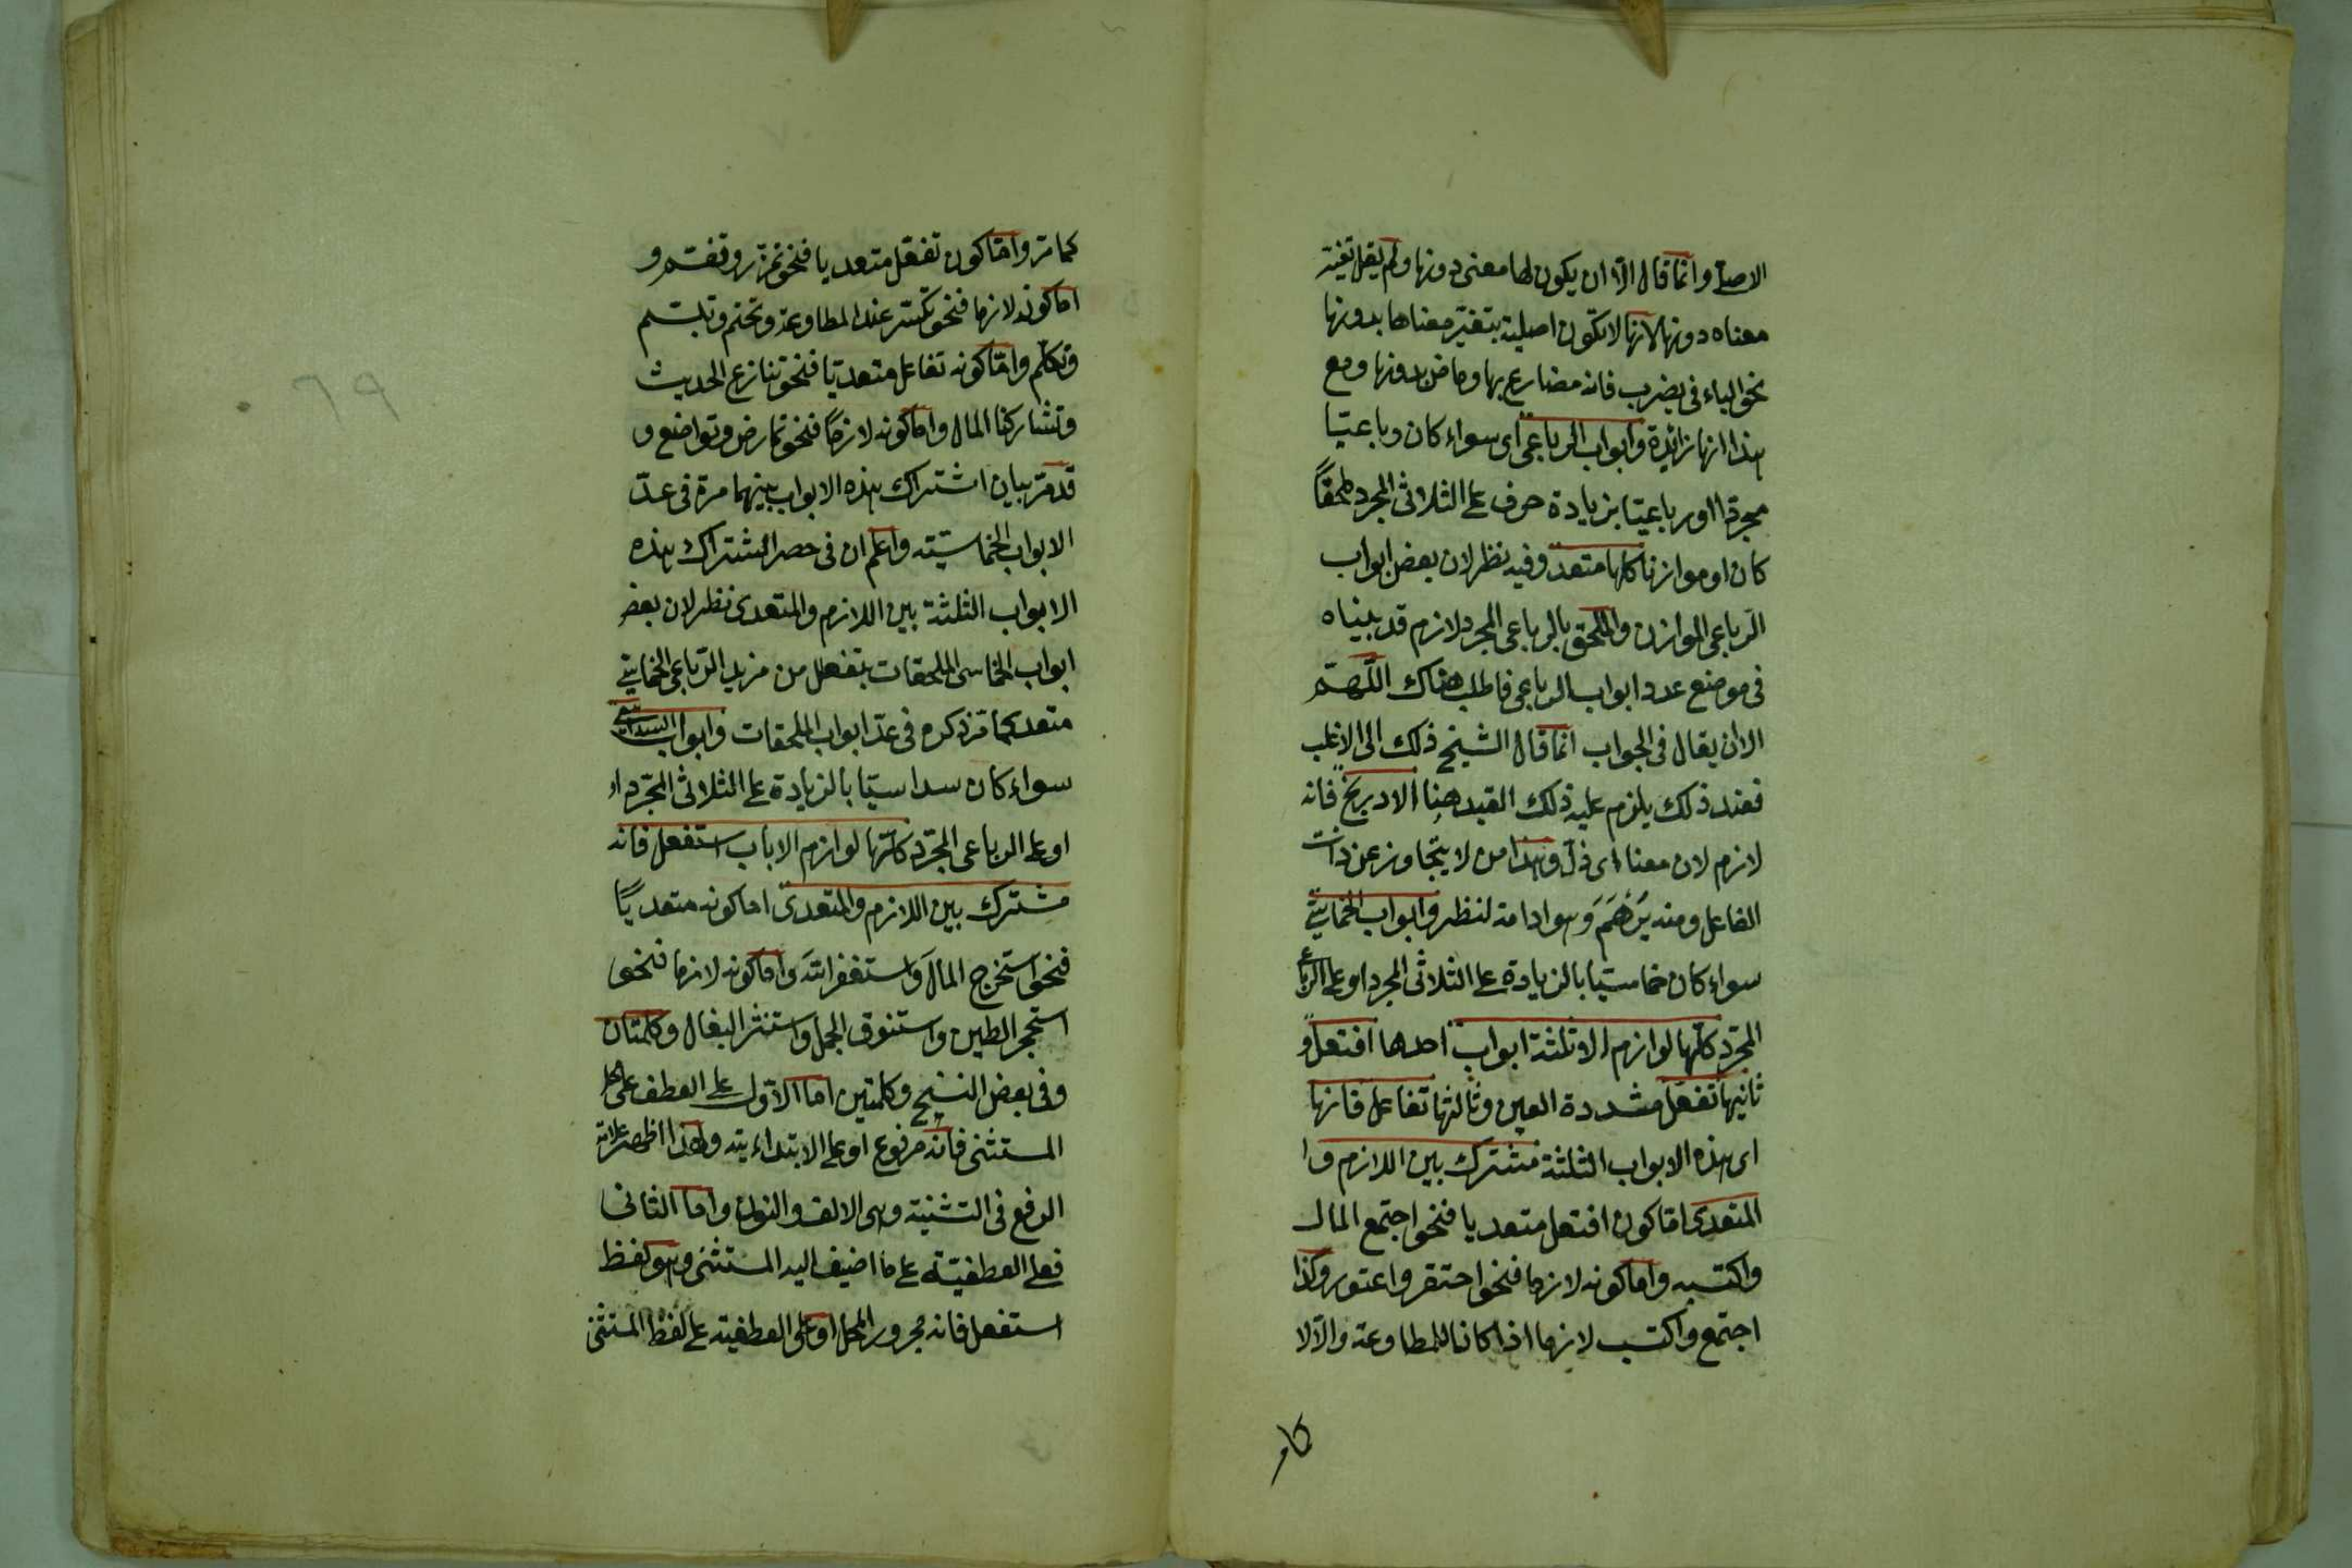 الاصلے وانما قال الا ان يكون لها معنى دونها ولم يقل تغيّر
معناه دونها لانها لا تكون اصلية بتغيّر معناها بدونها
نحو الياء فى يضرب فانه مضارع بها وماض بدونها ومع
هذا انها زائدة وابواب الرباعى اى سواء كان رباعيّا
مجردا او رباعيّا بزيادة حرف على الثلاثى المجرد ملحقاً
كان او موازنا كلها متعد وفيه نظر لان بعض ابواب
الرّباعى الموازن والملحق بالرباعى المجرد لازم قد بيناه
فى موضع عدد ابواب الرباعى فاطلب هناك اللّهمّ
الا ان يقال فى الجواب انما قال الشيخ ذلك الى الاغلب
فعند ذلك يلزم عليه ذلك القيد هنا الا دربخ فانه
لازم لان معناه اى ذلّ وهذا من لا يتجاوز عن ذات
الفاعل ومنه بَرْهَمَ وهو ادامة لنظر وابواب الخماسىّ
سواء كان خماسيّا بالزيادة على الثلاثى المجرد او على الرباعى
المجرّد كلّها لوازم الا ثلثة ابواب احدها افتعل و
ثانيها تفعّل مشددة العين وثالثها تفاعل فانها
اى هذه الابواب الثلثة مشترك بين اللازم وا
المتعدى امّا كون افتعل متعديا فنحو اجتمع المال
واكتسبه واما كونه لازما فنحو احتقر واعتور وكذا
اجتمع واكتسب لازما اذا كانا للمطاوعة والّا لا
كما مرّ وامّا كون تفعّل متعديا فنحو تمزّر وتقسّم و
اما كونه لازما فنحو تكسّر عند المطاوعة وتختم وتبسّم
وتكلّم وامّا كونه تفاعل متعديّا فنحو تنازع الحديث
وتشاركنا المال واما كونه لازماً فنحو تمارض وتواضع و
قد مرّ بيان اشتراك هذه الابواب بينهما مرة فى عدّ
الابواب الخماسيّة واعلم ان فى حصر اشتراك هذه
الابواب الثلثة بين اللازم والمتعدى نظر لان بعض
ابواب الخماسى الملحقات بتفعلل من مزيد الرّباعى الخماسىّ
متعد كما مرّ ذكره فى عدّ ابواب الملحقات وابواب السداسىّ
سواء كان سداسيّا بالزيادة على الثلاثى المجّرد او
او على الرباعى المجرّد كلّها لوازم الا باب استفعل فانه
مشترك بين اللازم والمتعدى اما كونه متعديًا
فنحو استخرج المالَ واستغفر اللهَ واما كونه لازما فنحو
استحجر الطين واستنوق الجمل واستنثر البغال وكلمتان
وفى بعض النسخ وكلمتين اما الاوّل على العطف على محل
المستثنى فانّه مرفوع او على الابتداءية ولهذا اظهر علامة
الرفع فى التثنية وهى الالف والنون واما الثانى
فعلى العطفيّة على ما اضيف اليه المستثنى وهو لفظ
استفعل فانه مجرور المحل او على العطفية على لفظ المستثنى
كما مر
٦٩